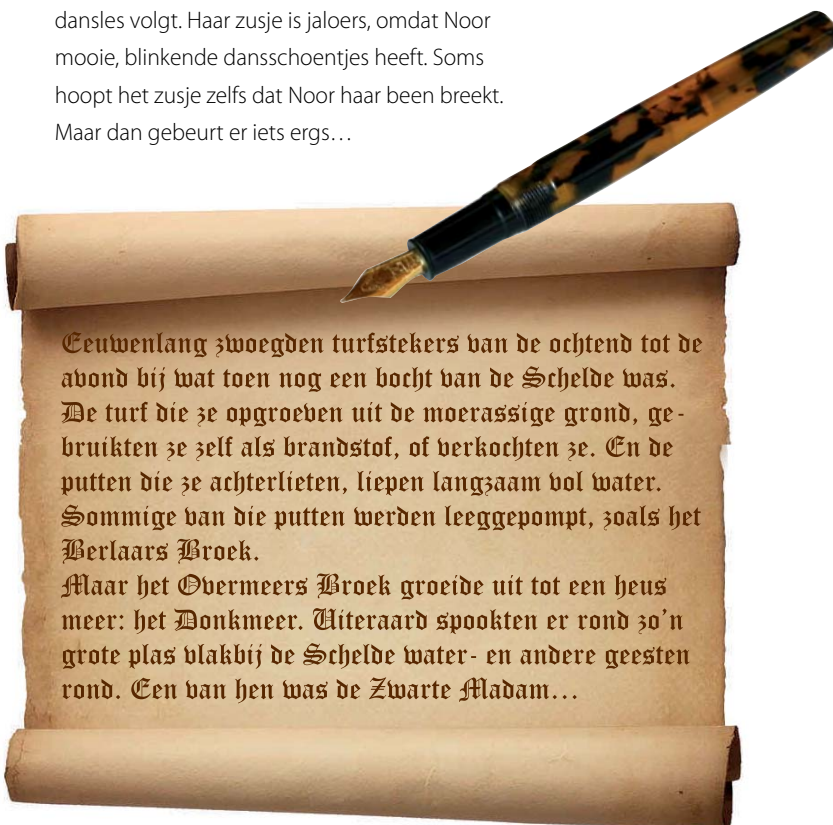 dansles volgt. Haar zusje is jaloers, omdat Noor
mooie, blinkende dansschoentjes heeft. Soms
hoopt het zusje zelfs dat Noor haar been breekt.
Maar dan gebeurt er iets ergs…
Eeuwenlang zwoegden turfstekers van de ochtend tot de
avond bij wat toen nog een bocht van de Schelde was.
De turf die ze opgroeven uit de moerassige grond, ge-
bruikten ze zelf als brandstof, of verkochten ze. En de
putten die ze achterlieten, liepen langzaam vol water.
Sommige van die putten werden leeggepompt, zoals het
Berlaars Broek.
Maar het Overmeers Broek groeide uit tot een heus
meer: het Donkmeer. Uiteraard spookten er rond zo'n
grote plas vlakbij de Schelde water- en andere geesten
rond. Een van hen was de Zwarte Madam…